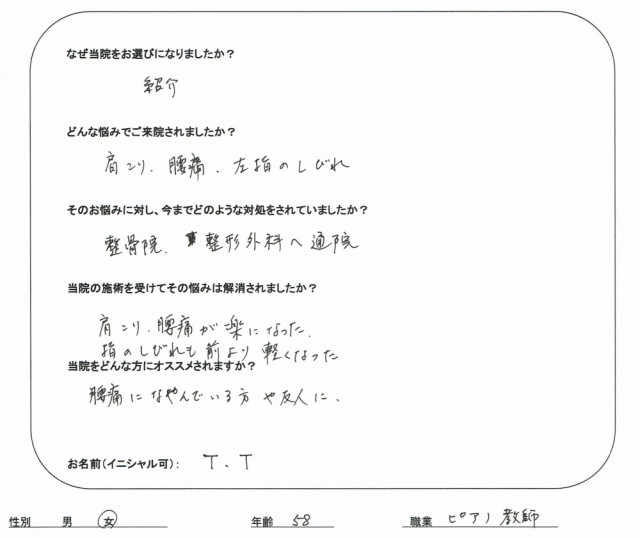 なぜ当院をお選びになりましたか？
紹介
どんな悩みでご来院されましたか？
肩こり、腰痛、左指のしびれ
そのお悩みに対し、今までどのような対処をされていましたか？
整骨院、整形外科へ通院
当院の施術を受けてその悩みは解消されましたか？
肩こり、腰痛が楽になった。
指のしびれも前より軽くなった
当院をどんな方にオススメされますか？
腰痛になやんでいる方や友人に。
お名前（イニシャル可）： T、T
性別 男 女 年齢 58 職業 ピアノ教師